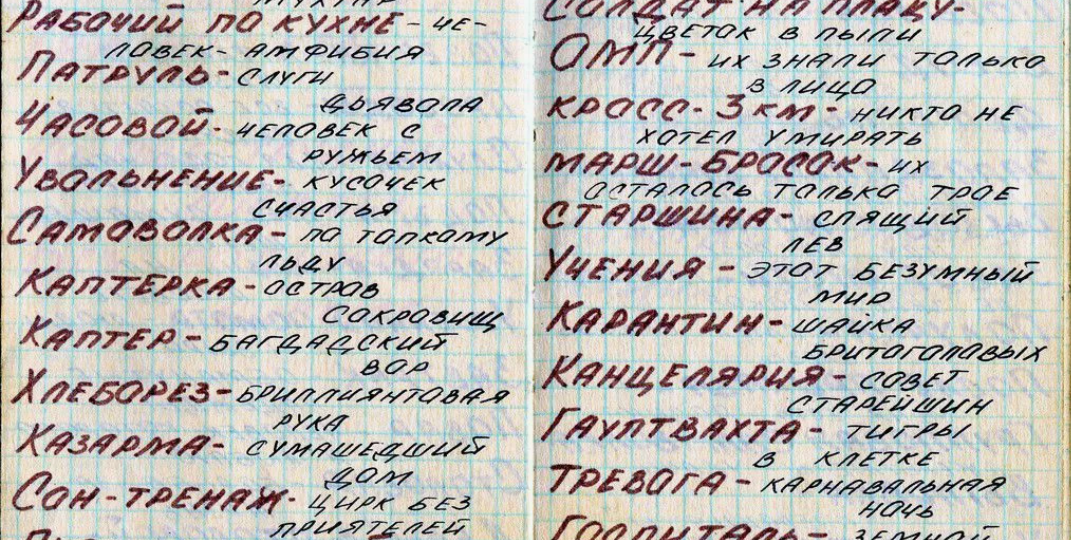 РАБОЧИЙ ПО КУХНЕ - ЧЕ-
ЛОВЕК - АМФИБИЯ
ПАТРУЛЬ - СЛУГИ
ДЬЯВОЛА
ЧАСОВОЙ - ЧЕЛОВЕК С
РУЖЬЕМ
УВОЛЬНЕНИЕ - КУСОЧЕК
СЧАСТЬЯ
САМОВОЛКА - ПО ТОНКОМУ
ЛЬДУ
КАПТЕРКА - ОСТРОВ
СОКРОВИЩ
КАПТЕР - БАГДАДСКИЙ
ВОР
ХЛЕБОРЕЗ - БРИЛЛИЯНТОВАЯ
РУКА
КАЗАРМА - СУМАШЕДШИЙ
ДОМ
СОН-ТРЕНАЖ - ЦИРК БЕЗ
ПРИЯТЕЛЕЙ
СОЛДАТ НА ПЛАЦУ -
ЦВЕТОК В ПЫЛИ
ОМП - ИХ ЗНАЛИ ТОЛЬКО
В ЛИЦО
КРОСС - 3 КМ - НИКТО НЕ
ХОТЕЛ УМИРАТЬ
МАРШ-БРОСОК - ИХ
ОСТАЛОСЬ ТОЛЬКО ТРОЕ
СТАРШИНА - СПЯЩИЙ
ЛЕВ
УЧЕНИЯ - ЭТОТ БЕЗУМНЫЙ
МИР
КАРАНТИН - ШАЙКА
БРИТОГОЛОВЫХ
КАНЦЕЛЯРИЯ - СОВЕТ
СТАРЕЙШИН
ГАУПТВАХТА - ТИГРЫ
В КЛЕТКЕ
ТРЕВОГА - КАРНАВАЛЬНАЯ
НОЧЬ
ГОСПИТАЛЬ - ЗЕМНОЙ